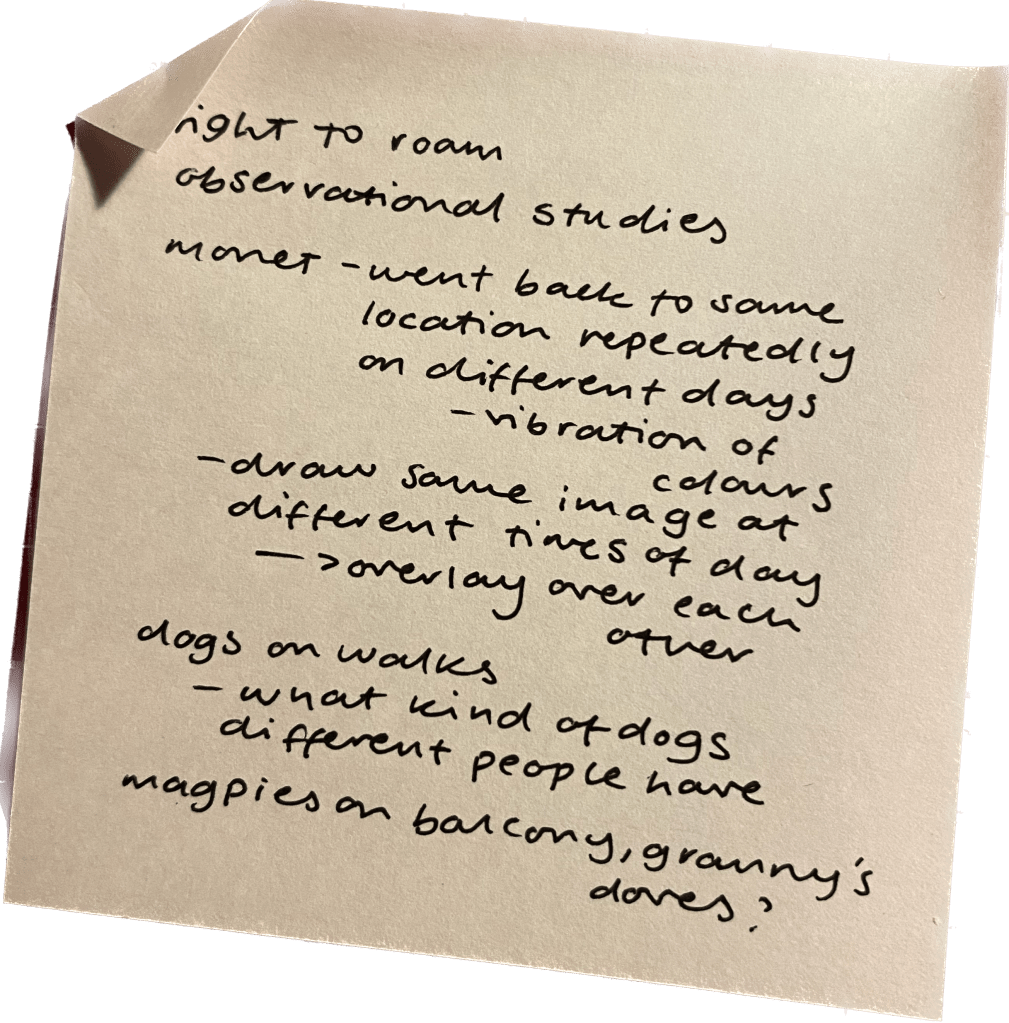 right to roam
observational studies
monet - went back to same
location repeatedly
on different days
- vibration of
colours
- draw same image at
different times of day
—> overlay over each
other
dogs on walks
- what kind of dogs
different people have
magpies on balcony, granny's
doves?